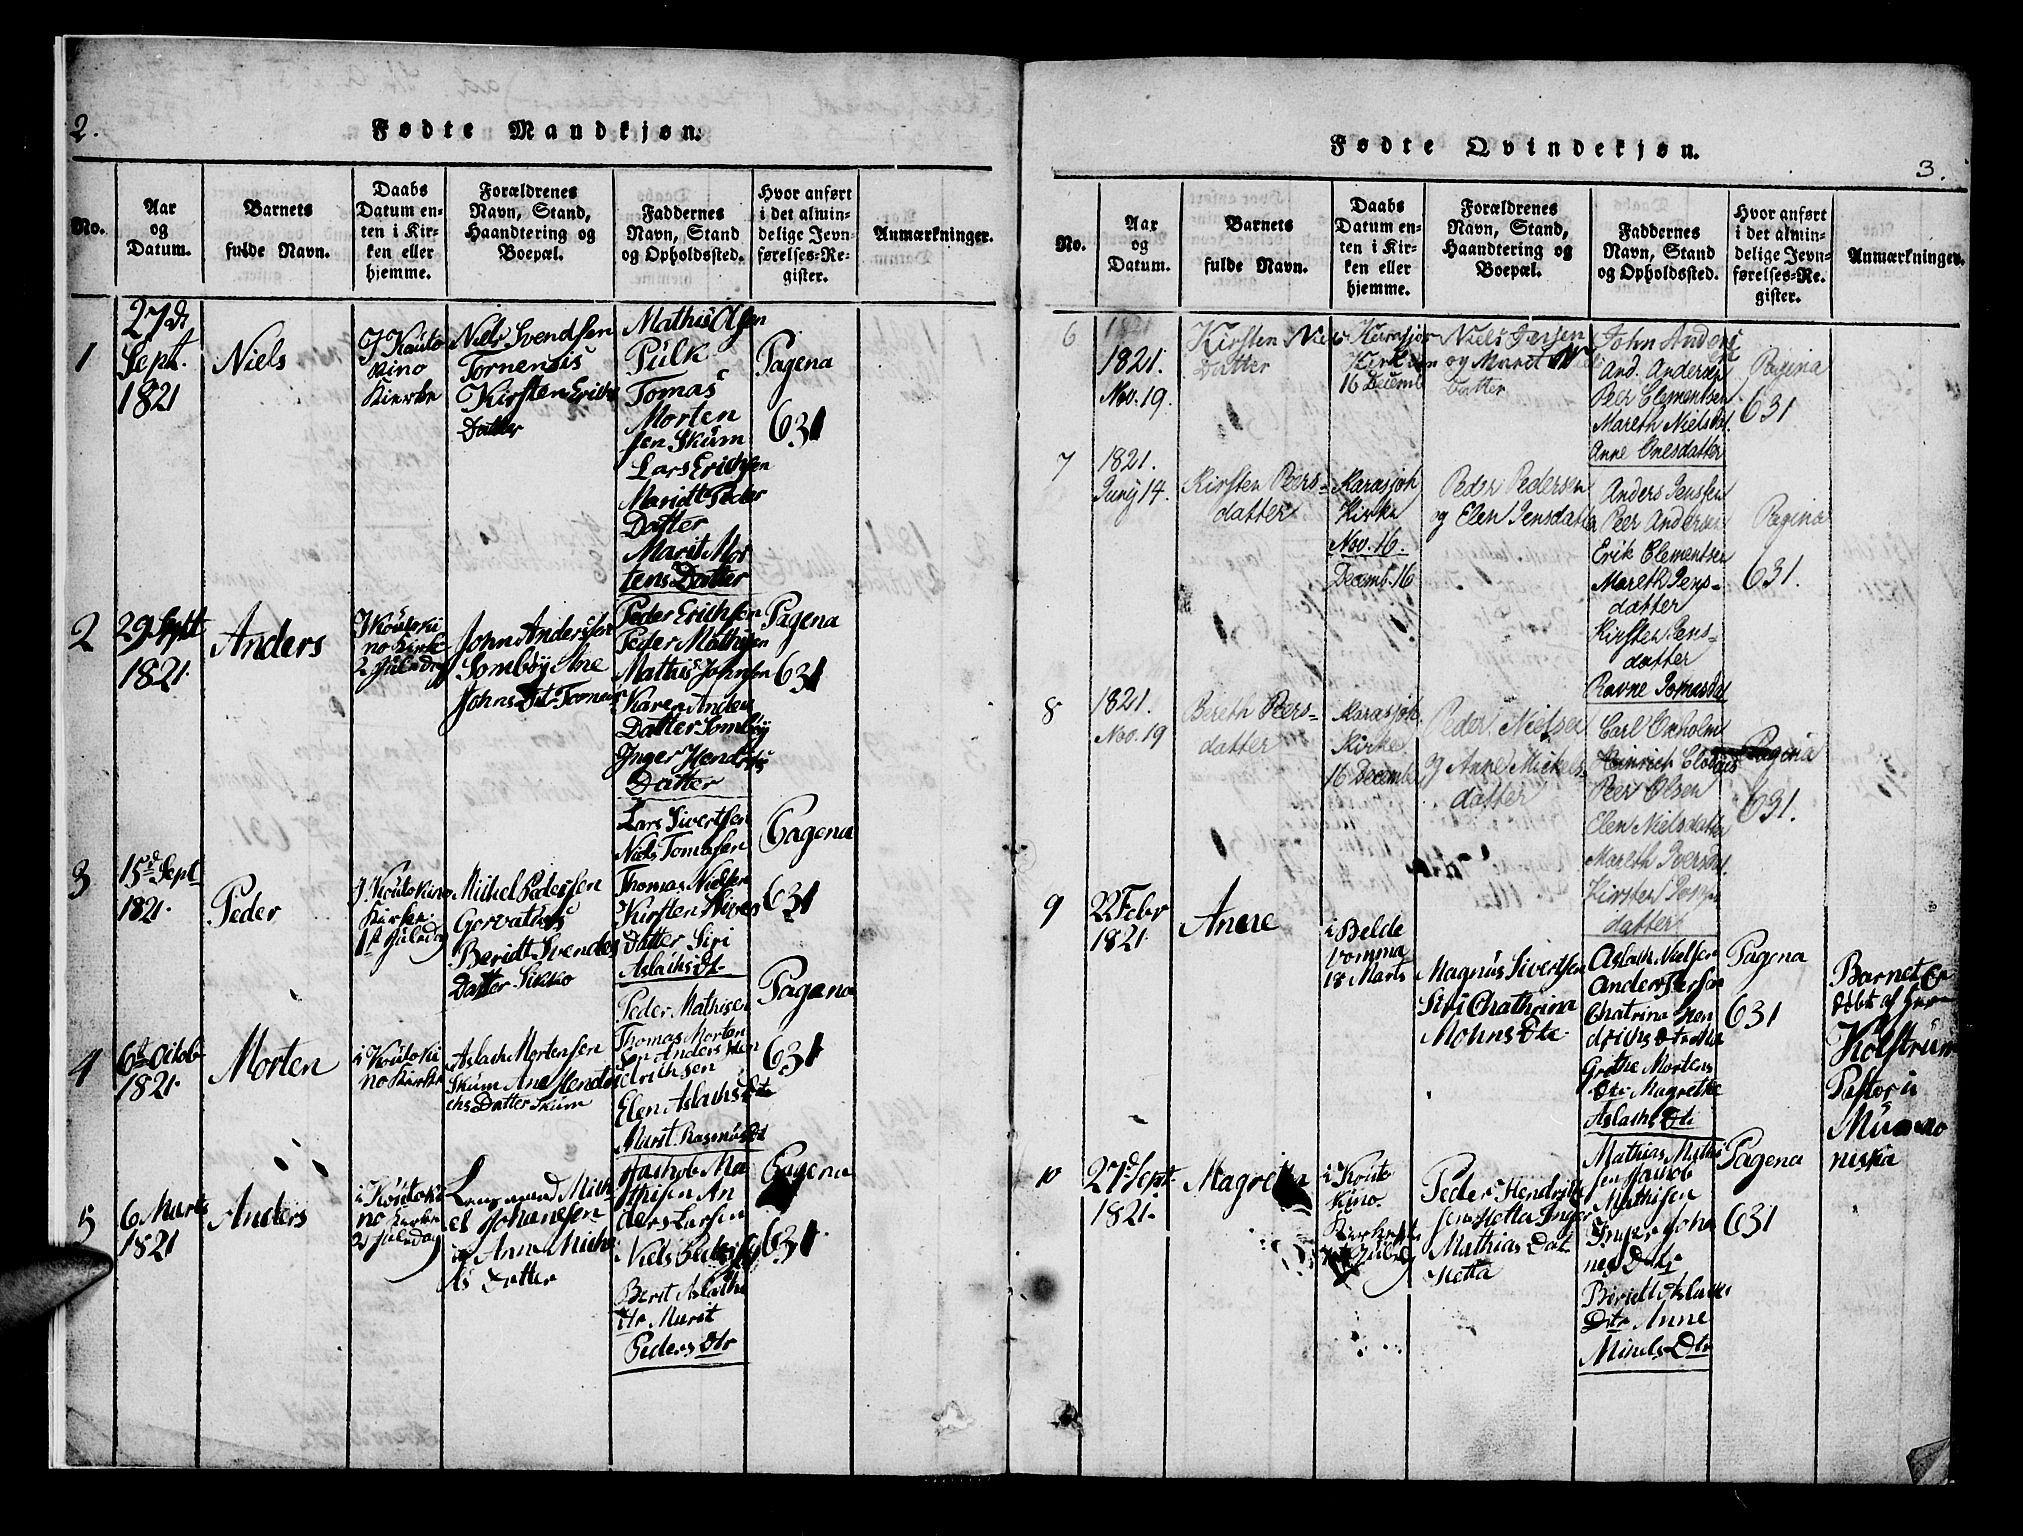 2.
Fødte Mandkjøn.
No.
Aar
og
Datum.
Barnets
fulde Navn.
Daabs
Datum en-
ten i Kir-
ken eller
hjemme.
Forældrenes
Navn, Stand,
Haandtering og
Boepæl.
Faddernes
Navn, Stand
og Opholdssted.
Hvor anført
i det almin-
delige Jevn-
førelses-Re-
gister.
Anmærkninger.
1
27de
Sept.
1821
Niels
J Kauto
kino
Kierke
Niels Svendsen
Tornensis
Kirsten Erichs
Datter
Mathis Olsen
Pulk
Tomas
Morten
sen Skum
Lars Erichsen
Maridt Peder
Datter
Marit Mor
tens Datter
Pagena
631
2
29 Sept
1821
Anders
J Koutoki
no Kirke
2 Juledag
John Anderssen
Somby Ane
Johns Dt. Tornens
Peder Erichsen
Peder Mathisen
Mathis Johnsen
Karen Anders
Datter Somby
Inger Hendrichs
Datter
Pagena
631
3
15d Sept
1821.
Peder
J Koutokino
Kirke
1st Juledag
Michel Pedersen
Gervatius
Beridt Svends
Datter Sikko
Lars Sivertsen
Niels Tomasen
Thomas Nielsen
Kirsten
Datter Siri
Aslachs Dt.
Pagena
631
4
6te Octob
1821.
Morten
i Koutoki
no Kirke
Aslach Mortensen
Skum Ane Hendri
chs Datter Skum
Peder Mathisen
Thomas Morten
sen Anders Hen
drichsen
Elen Aslachs Dtr
Marit Rasmus Dt
Pagena
631
5
6 Marts
1821
Anders
i Koutoki
no Kirke
2 Juledag
Michel Johanesen
Anne Miche
ls Datter
Jachob Ma
thisen An
ders Larsen
Niels Pedersen
Berit Aslachs
Dtr Marit
Peders Dtr
Pagena
631
Fødte Qvindekjøn.
3.
No.
Aar
og
Datum.
Barnets
fulde Navn.
Daabs
Datum en-
ten i Kir-
ken eller
hjemme.
Forældrenes
Navn, Stand,
Haandtering og
Boepæl.
Faddernes
Navn, Stand
og Opholdssted.
Hvor anført
i det almin-
delige Jevn-
førelses-Re-
gister.
Anmærkninger.
6
1821
1821.
Nov. 19.
Kirsten Niels
Datter
Karasjok
Kirken
16 Decemb
Niels Jensen
og Maret
Datter
John Anders
And. Andersen
Peer Clementsen
Mareth Nielsdat.
Anne Onesdatter
Pagina
631
7
1821.
Juny 14.
Kirsten Peers-
datter
Karasjoh
Kirke
Nov. 16.
Decemb. 16
Peder Pedersen
og Elen Jensdatter
Anders Jenssen
Peer Andersen
Erik Clementsen
Mareth Jens-
datter
Kirsten Jens-
datter
Ravne Tomasdat
Pagina
631.
8
1821.
Nov. 19
Bereth Peers-
datter
Karasjoh.
Kirke
16 Decembr
Peder Nielsen
og Anne Mickels-
datter
Carl Oxholm
Hinrich
Peer Olsen
Elen Nielsdatter
Mareth Iversdat.
Kirsten
datter
Pagina
631.
9
22 Febr
1821.
Anne
i Belde
vomma
18 Marts
Magnus Sivertsen
Siri Chathrina
Mohns Dtr.
Aslach Nielsen
Anders Persen
Chatrina Hen
drichs Dtr
Grethe Mortens
Dtr Magrethe
Aslachs Dtr
Pagena
631
Barnet er
døbt af Herr
Kolstrum
Pastor i
Muono
niska
10
27d Sept.
1821.
Magrethe
i Koute
kino
Peder Hendrich
sen Hetta Inger
Mathias Dat.
Hetta
Mathias Mathi
sen Jacob
Mathisen
Inger Joha
nes Datr
Biridt Aslachs
Dtr Anne
Michels Dtr
Pagena
631